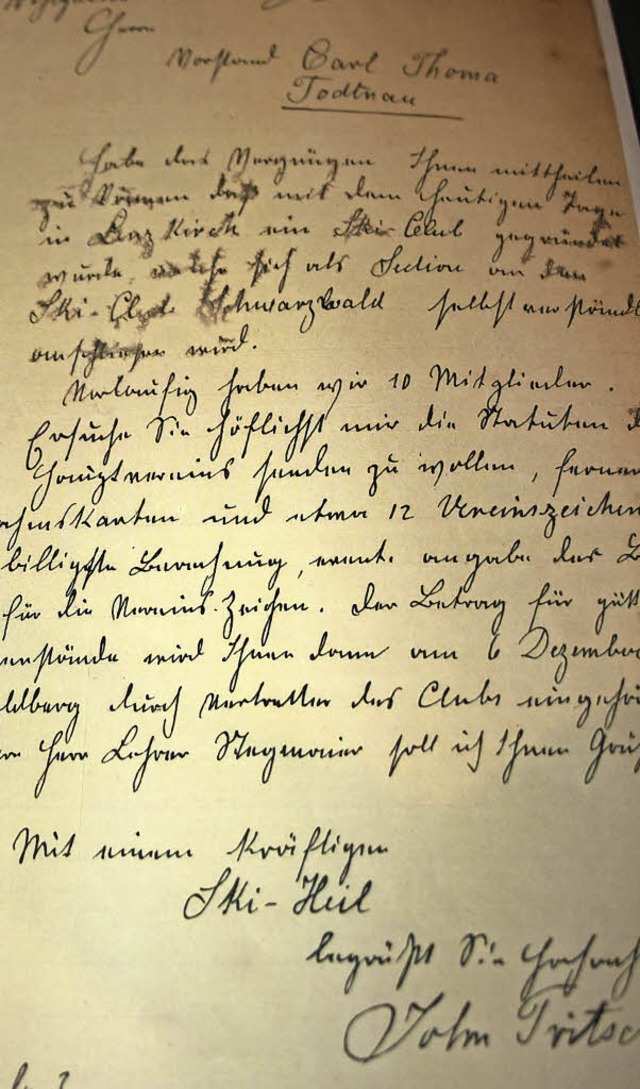 Herrn
Vorstand Carl Thoma
Todtnau
Habe das Vergnügen Ihnen mittheilen
zu können daß mit dem heutigen Tage
in Lenzkirch ein Ski-Club gegründet
wurde, welche sich als Section an den
Ski-Club Schwarzwald selbstverständl
anschliesen wird.
Vorläufig haben wir 10 Mitglieder.
Ersuche Sie höflichst mir die Statuten d
Hauptvereins senden zu wollen, ferner
ahmskarten und etwa 12 Vereinszeichen
billigste Berechnung, event. angabe des B
für die Vereins-Zeichen. Der Betrag für
wird Ihnen dann am 6 Dezember
ldberg durch Vertretter des Clubs
Herr Lehrer Stegmaier soll ich Ihnen Grü
Mit einem kräftigen
Ski-Heil
begrüßt Sie hochach
John Tritsc